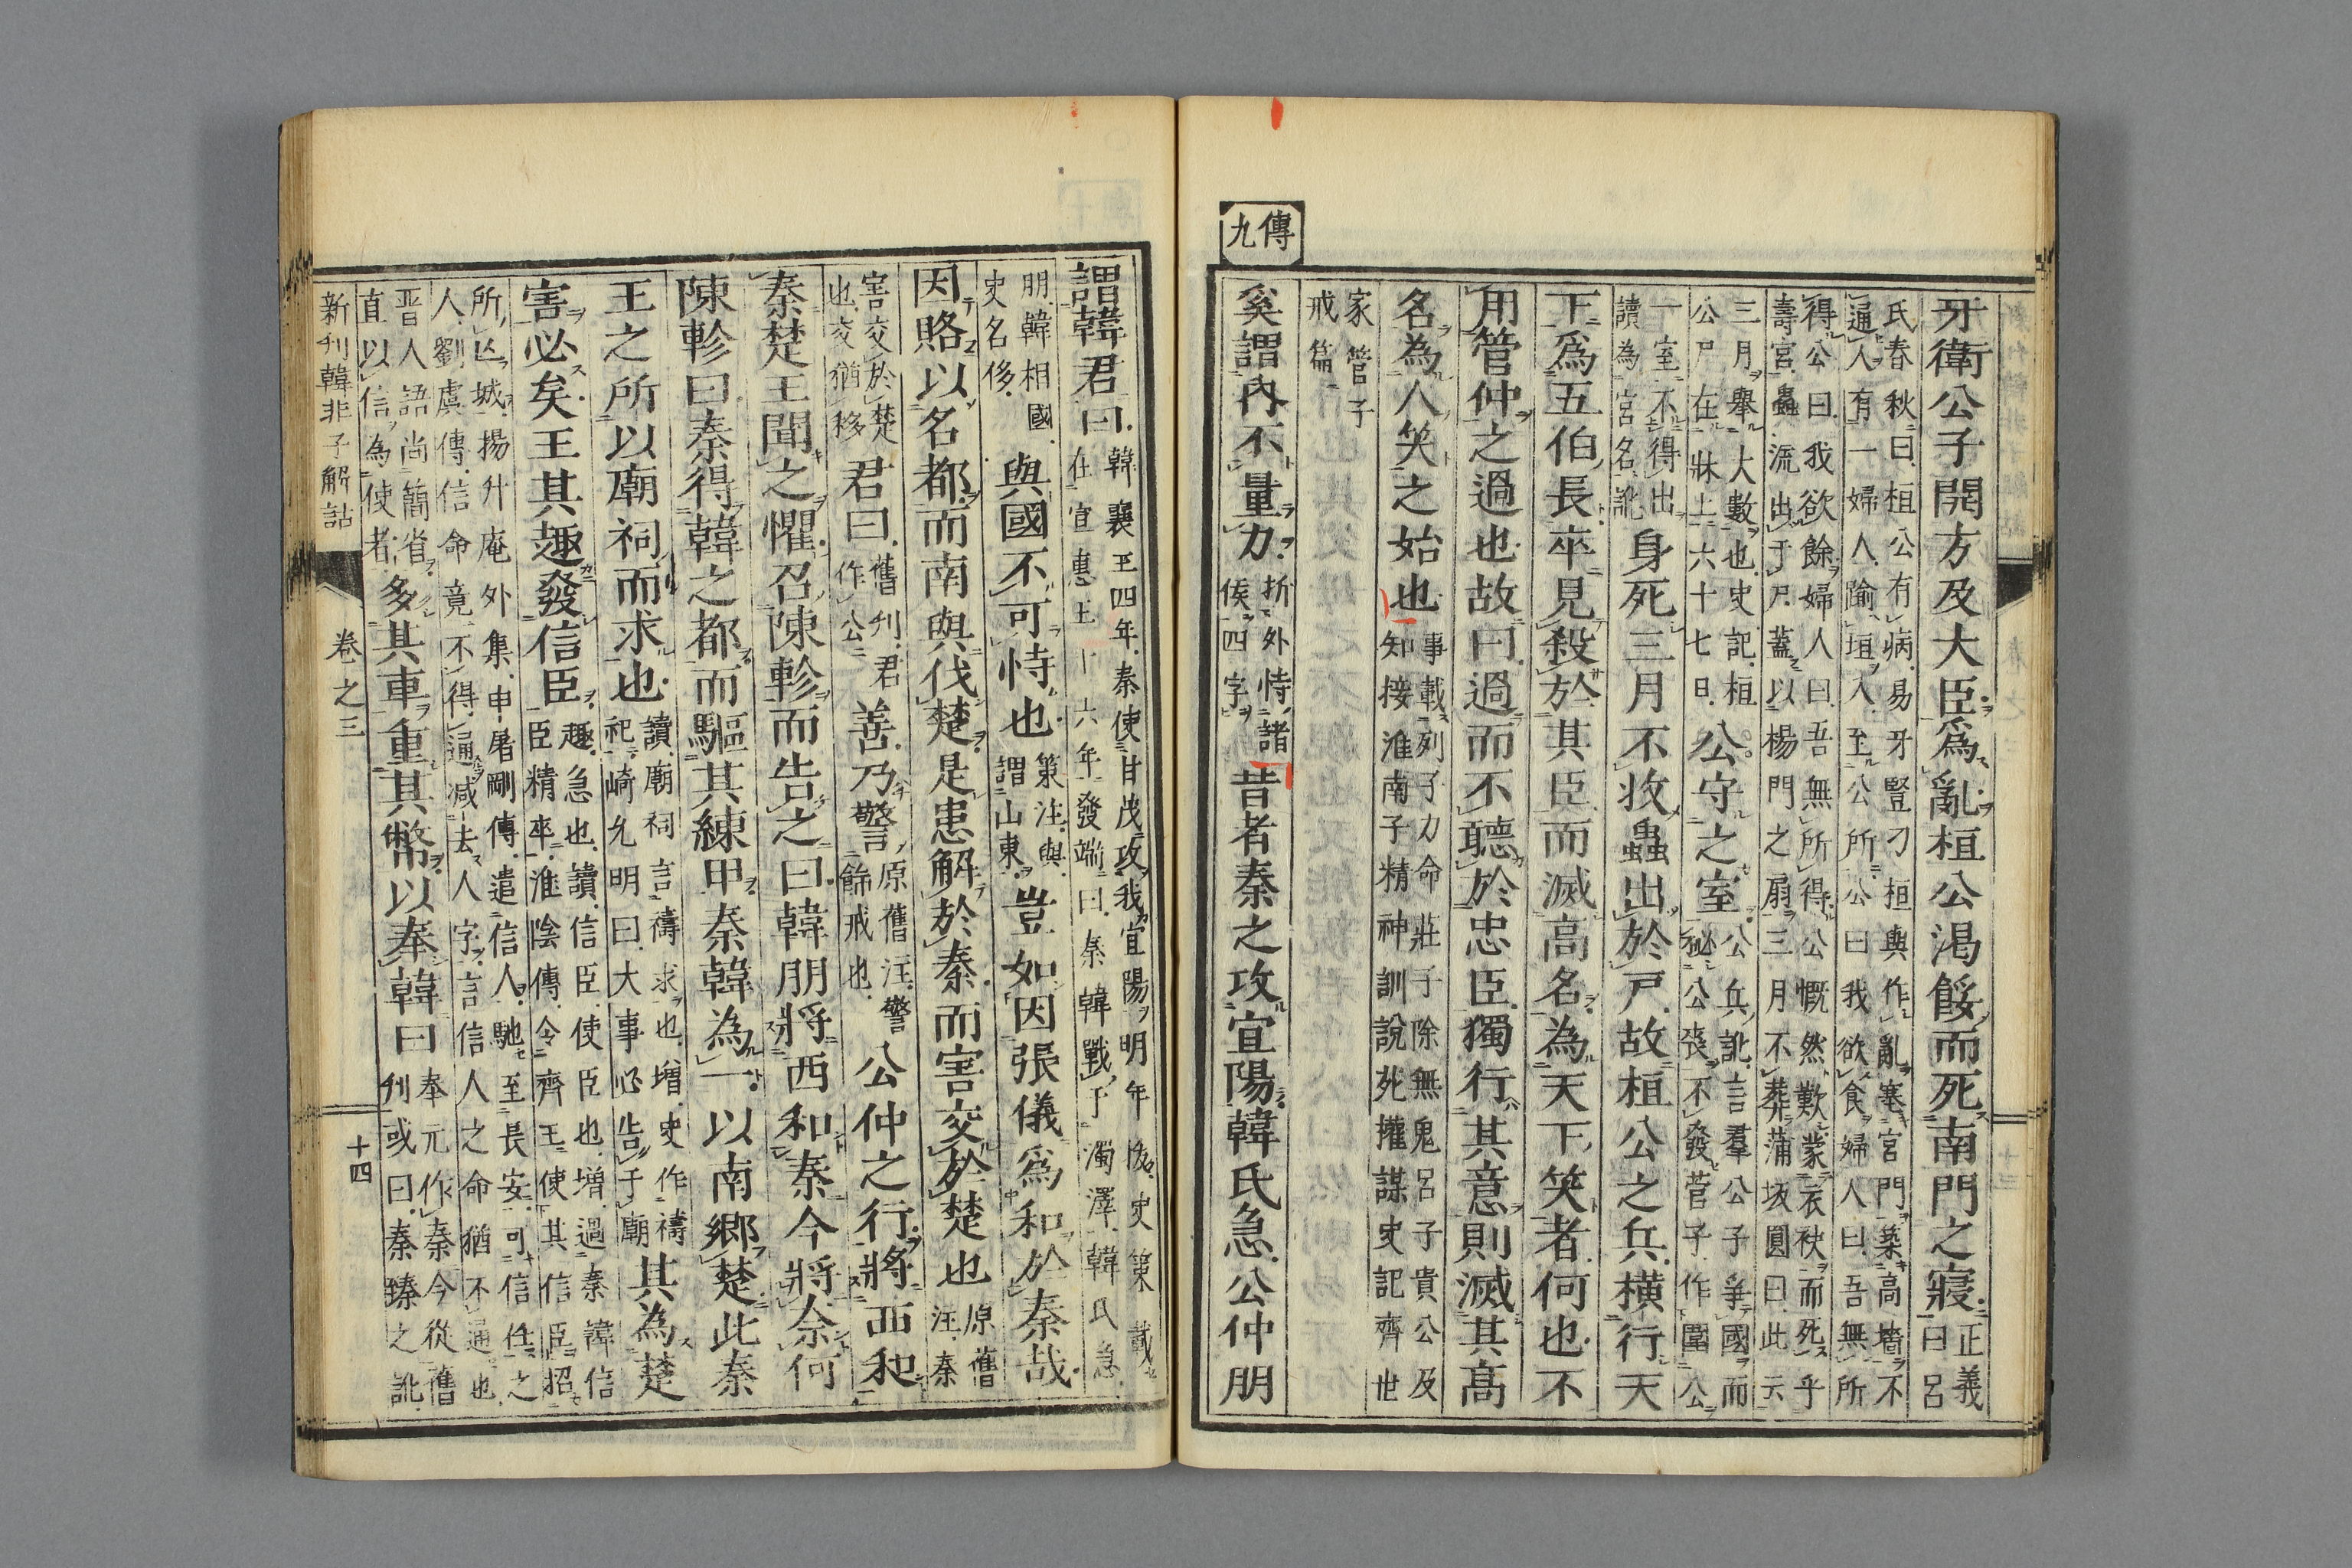 傳九
牙衛公子開方及大臣爲亂桓公渴餒而死南門之寢正義曰呂
氏春秋曰桓公有病易牙豎刁桓與作亂塞宮門築高墻不
通人有一婦人踰垣入至公所公曰我欲食婦人曰吾無所
得公曰我欲餘婦人曰吾無所得公慨然歎蒙衣袂而死乎
壽宮蟲流出于尸蓋以楊門之扇三月不葬蒲坂圓曰此云
三月擧大數也史記桓
公尸在牀上六十七日公守之室公兵訛言羣公子爭國而
秘公喪不發管子作圍公
一室不得出
讀為宮名訛身死三月不收蟲出於戸故桓公之兵橫行天
下爲五伯長卒見殺於其臣而滅高名為天下笑者何也不
用管仲之過也故曰過而不聽於忠臣獨行其意則滅其高
名為人笑之始也事載列子力命莊子除無鬼呂子貴公及
知接淮南子精神訓說死權謀史記齊世
家管子
戒篇
奚謂內不量力折外恃諸
侯四字昔者秦之攻宜陽韓氏急公仲朋
謂韓君曰韓襄王四年秦使甘茂攻我宜陽明年拔史策載
在宣惠王十六年發端曰秦韓戰于濁澤韓氏急
朋韓相國
史名侈與國不可恃也策注與
謂山東豈如因張儀爲和於秦哉
因賂以名都而南與伐楚是患解於秦而害交於楚也原舊
注秦
害交於楚
也交猶移君曰舊刋君
作公善乃警原舊注警
飾戒也公仲之行將西和
秦楚王聞之懼召陳軫而告之曰韓朋將西和秦今將奈何
陳軫曰秦得韓之都一而驅其練甲秦韓為一以南鄉楚此秦
王之所以廟祠而求也讀廟祠言禱求也增史作禱
祀崎允明曰大事必告于廟其為楚
害必矣王其趣發信臣趣急也讀信臣使臣也增過秦諱信
臣精卒淮陰傳令齊王使其信臣招
所亾城揚升庵外集申屠剛傳遣信人馳至長安可信任之
人劉虞傳信命竟不得通减去人字言信人之命猶不通也
晋人語尚簡省
直以信為使者多其車重其幣以奉韓曰奉元作秦今從舊
刋或曰秦臻之訛
新刋韓非子解詁
卷之三
十四